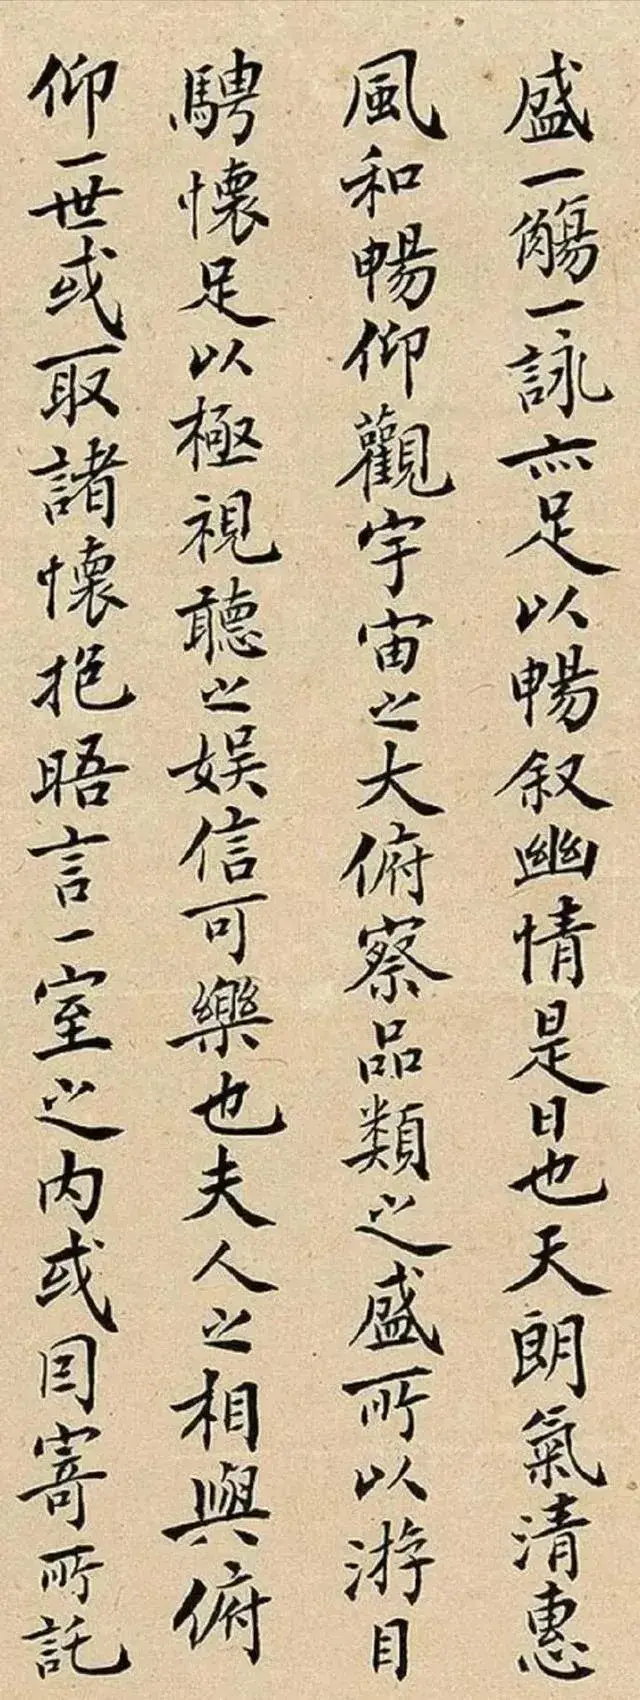 盛一觴一詠亦足以暢叙幽情是日也天朗氣清惠
風和暢仰觀宇宙之大俯察品類之盛所以游目
騁懷足以極視聽之娱信可樂也夫人之相與俯
仰一世或取諸懷抱晤言一室之内或因寄所託